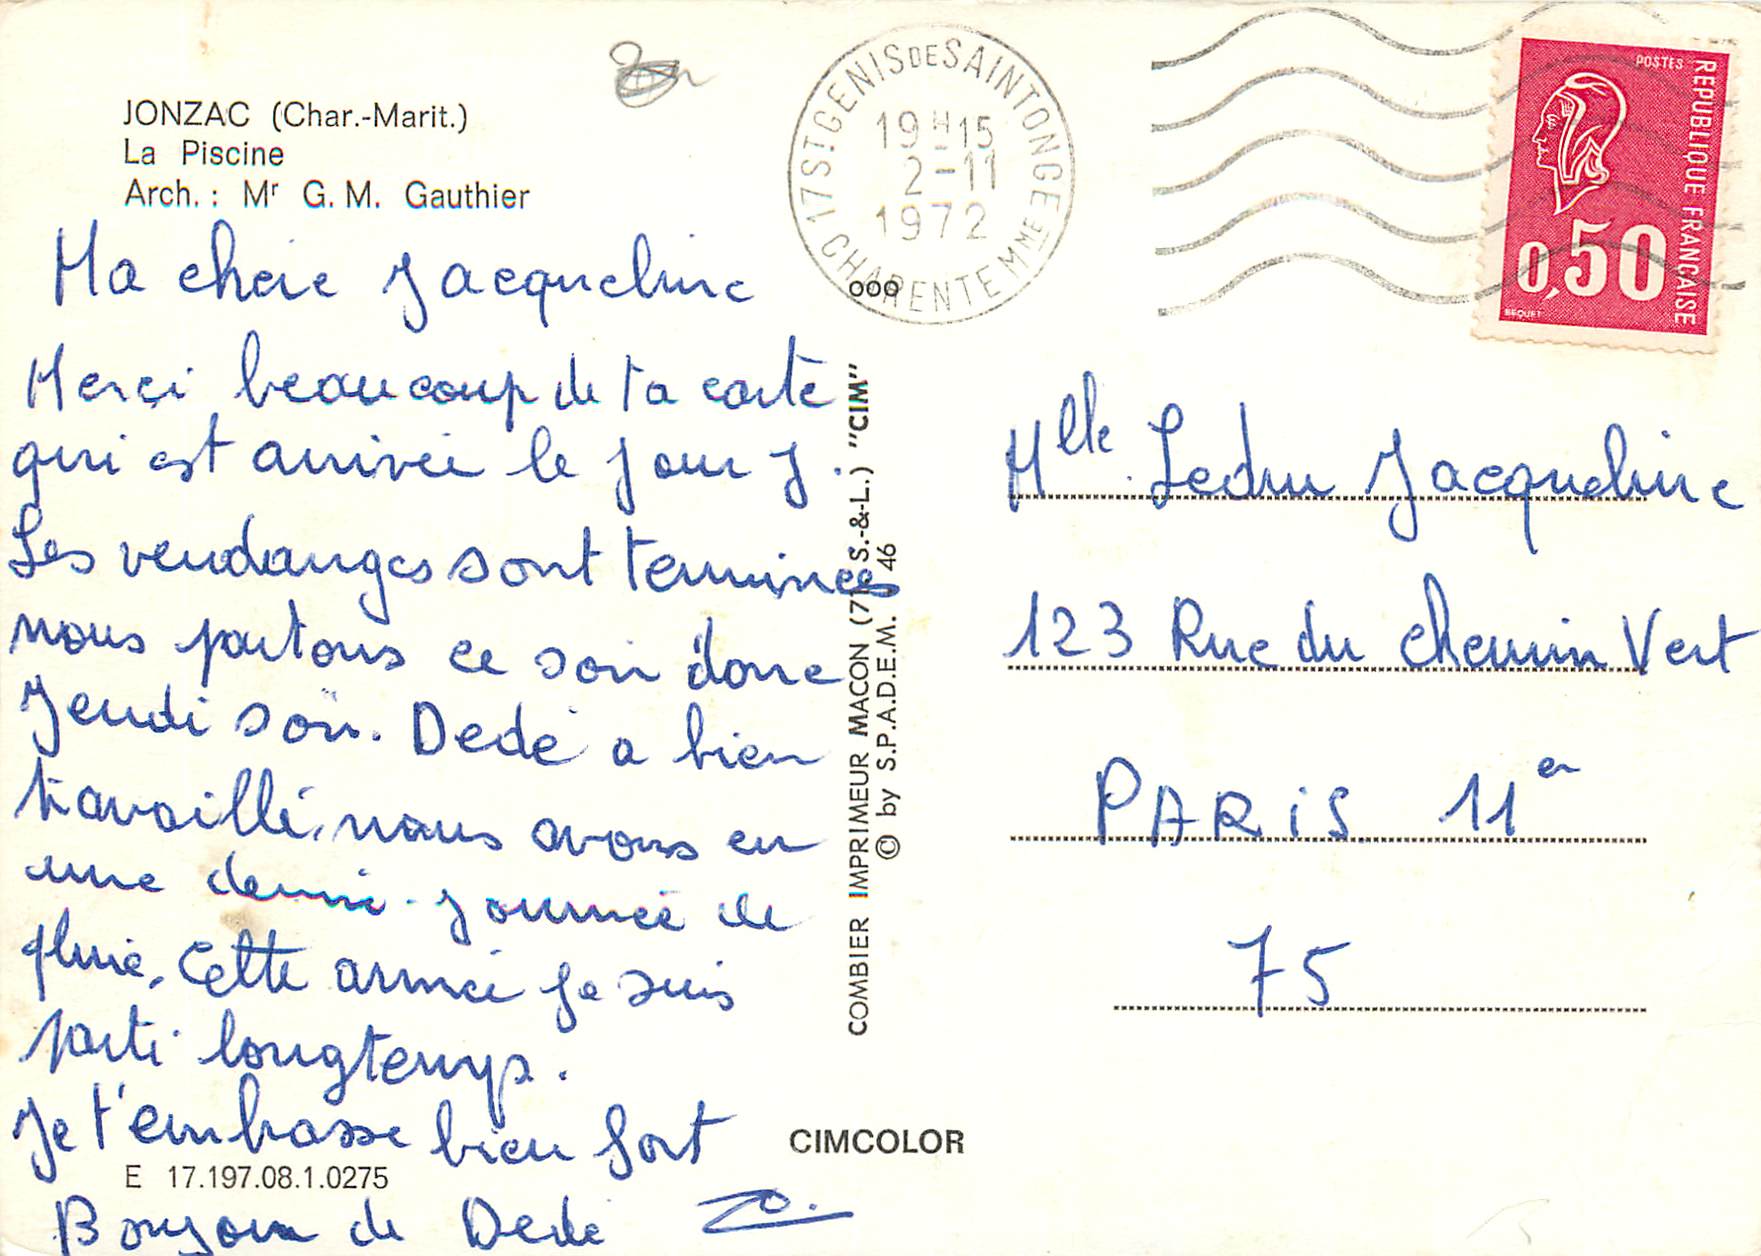 JONZAC (Char.-Marit.)
La Piscine
Arch. : Mr G. M. Gauthier
Ma cherie Jacqueline
Merci beaucoup de ta carte
qui est arrivée le jour J.
Les vendanges sont terminées
nous partons ce soir donc
Jeudi soir. Dédé a bien
travaillé, nous avons eu
une demie-journée de
pluie. Cette année je suis
parti longtemps.
Je t'embrasse bien fort
Bonjour de Dédé
E 17.197.08.1.0275
17 ST GENIS DE SAINTONGE
19 H 15
2-11
1972
CHARENTE MME
000
COMBIER IMPRIMEUR MACON (71 S.-&-L.) "CIM"
© by S.P.A.D.E.M. 46
CIMCOLOR
POSTES
REPUBLIQUE FRANÇAISE
0,50
BEQUET
Mlle Leduc Jacqueline
123 Rue du Chemin Vert
PARiS 11er
75